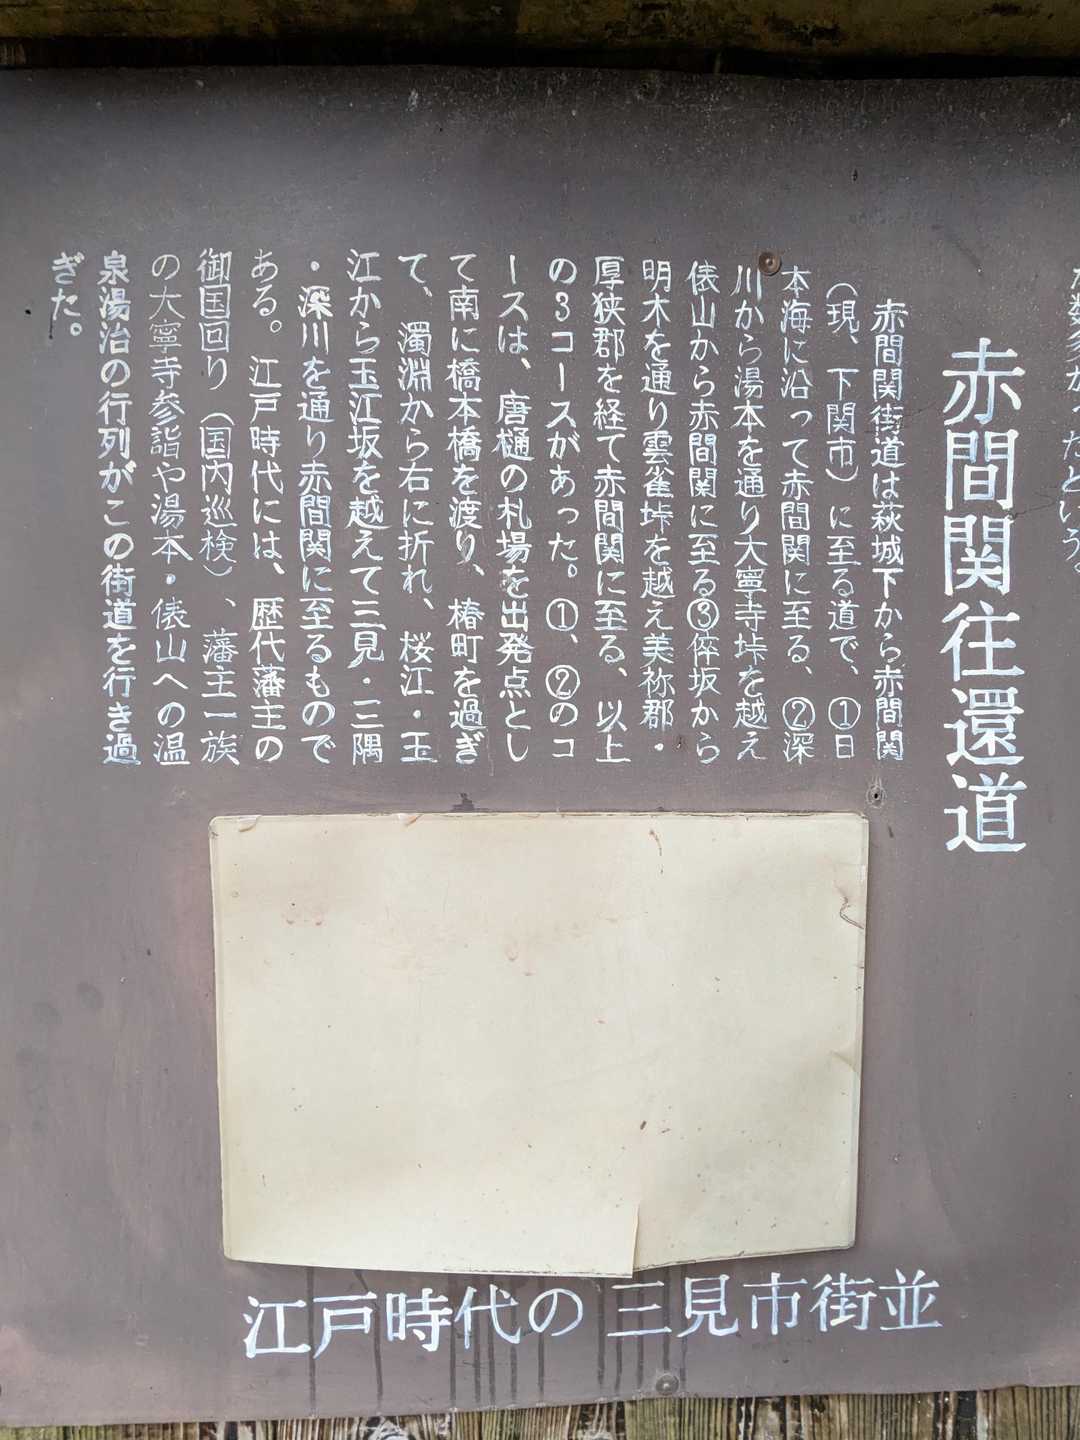 た数多かったという。
赤間関往還道
赤間関街道は萩城下から赤間関
(現、下関市)に至る道で、①日
本海に沿って赤間関に至る、②深
川から湯本を通り大寧寺峠を越え
俵山から赤間関に至る③倅坂から
明木を通り雲雀峠を越え美祢郡・
厚狭郡を経て赤間関に至る、以上
の3コースがあった。①、②のコ
ースは、唐樋の札場を出発点とし
て南に橋本橋を渡り、椿町を過ぎ
て、濁淵から右に折れ、桜江・玉
江から玉江坂を越えて三見・三隅
・深川を通り赤間関に至るもので
ある。江戸時代には、歴代藩主の
御国回り(国内巡検)、藩主一族
の大寧寺参詣や湯本・俵山への温
泉湯治の行列がこの街道を行き過
ぎた。
江戸時代の三見市街並